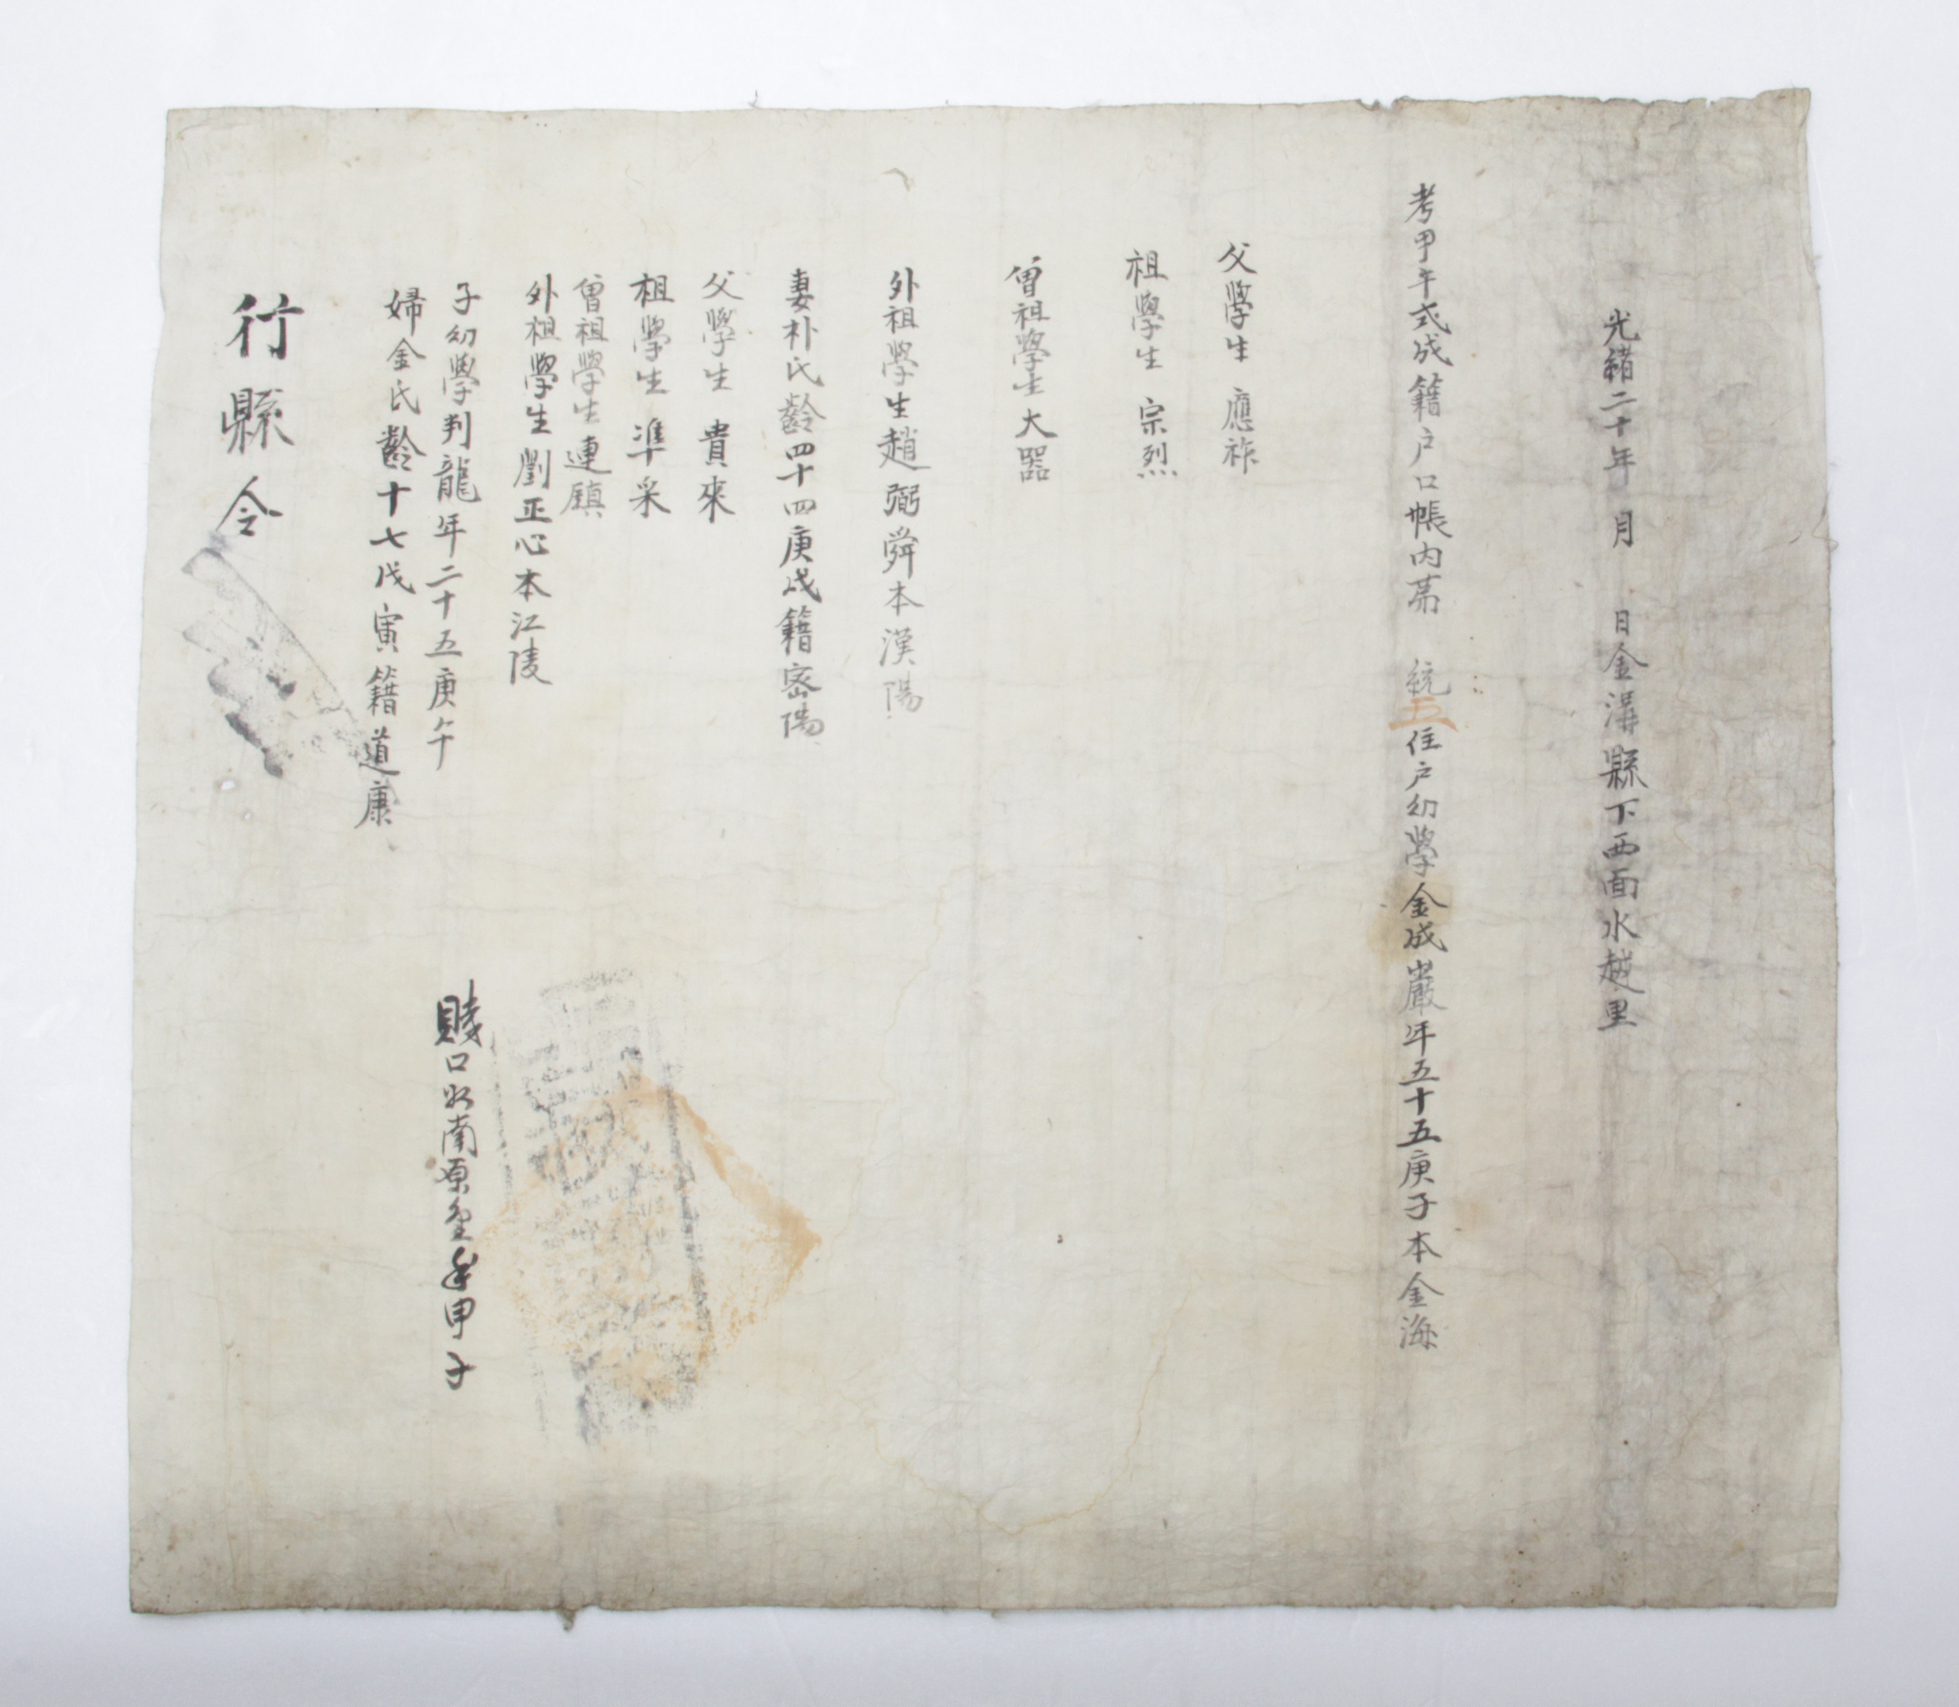 光緒二十年 月 日金溝縣下西面水越里
考甲午式成籍户口帳內苐 統五住户幼學金成巖年五十五庚子本金海
父學生 應祚
祖學生 宗烈
曾祖學生大器
外祖學生趙弼舜本漢陽
妻朴氏齡四十四庚戌籍密陽
父學生 貴來
祖學生 準采
曾祖學生連鎮
外祖學生劉正心本江陵
子幼學判龍年二十五庚午
婦金氏齡十七戊寅籍道康
賤口奴南原 甲子
行縣令